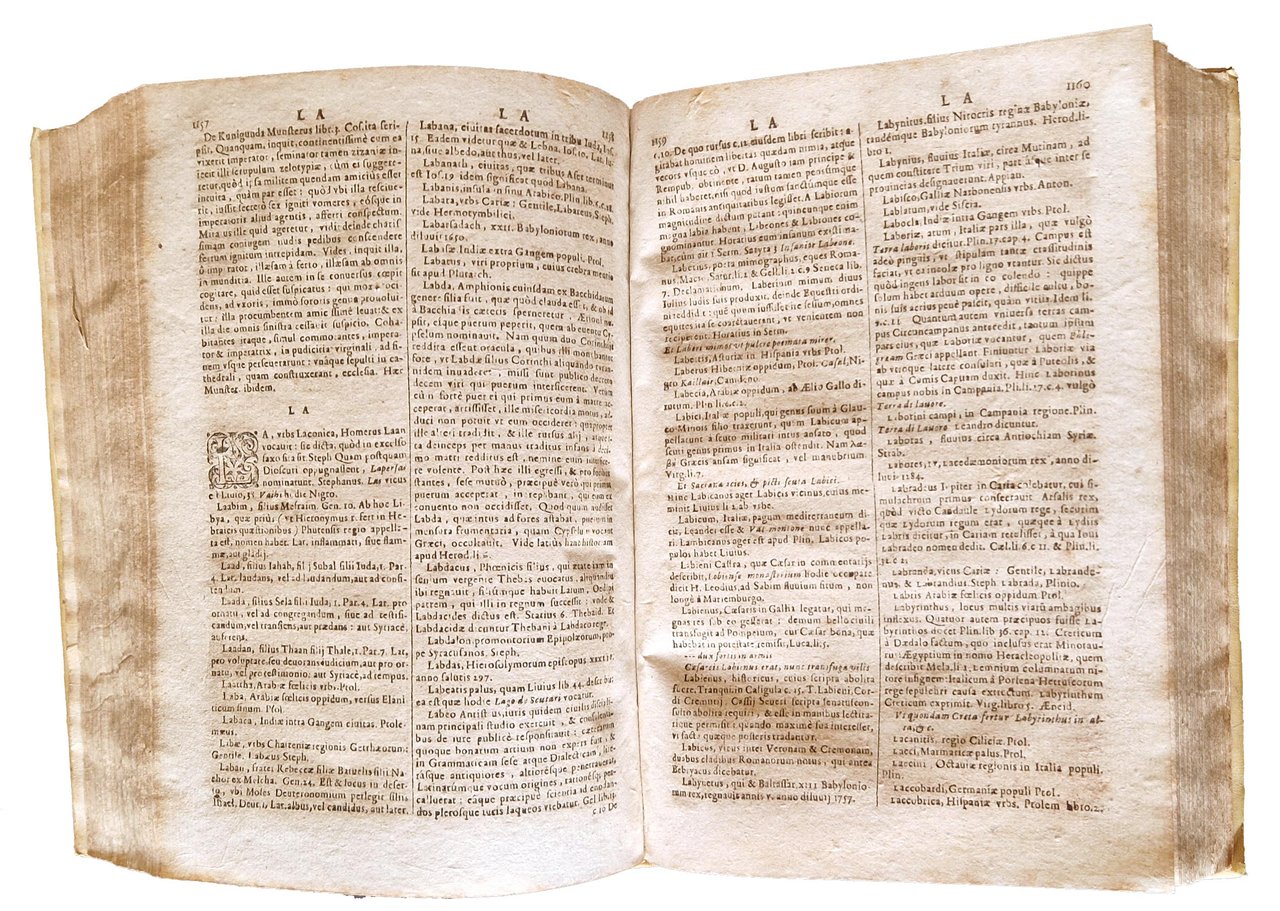 1157
LA
De Kunigunda Munsterus libr. 3. Cosita scri-
psit. Quanquam, inquit, continentissimè cum ea
vixerit imperator, seminator tamen zizaniæ in-
iecit illi scrupulum zelotypiæ, dum ei suggere-
retur, quòd is militem quendam amicius esset
intuita, quàm par esset: quod vbi illa resciue-
rit, iussit secreto sex igniti vomeres, eósque in
imperatoris aliud agentis, afferri conspectum.
Mira us ille quid ageretur, vidi; deinde charis
simam coniugem nudis pedibus conscendere
ferrum ignitum intrepidam. Vides, inquit illa,
ô imperator, illæsam à ferro, illæsam ab omni
in munditia. Ille autem in se conuersus cœpit
cogitare, quid esset suspicatus: qui mox
dens, ad vxoris, immò sororis genua prouolui-
tur: illa procumbentem amicissimè leuat: & ex
illa die omnis sinistra cessauit suspicio. Coha-
bitantes itaque, simul commo antes, impera-
tor & imperatrix, in pudicitia virginali, ad fi-
nem vsque perseuerarunt: vnáque sepulti in ca-
thedrali, quam construxerant, ecclesia. Hæc
Munster ibidem.
LA
LA, vrbs Laconica, Homerus Laan
vocauit: sic dicta, quòd in excelso
saxo sita sit Steph Quam postquam
Dioscuri oppugnassent, Lapersæ
nominatur. Stephanus. Las vicus
est Liuio, 35. Vathi hodie Nigro.
Laabim, filius Mesraim. Gen. 10. Ab hoc Li-
bya, quæ priùs (vt Hieronymus refert in He-
braicis quæstionibus) Phuthensis regio appella-
ta est, nomen habet. Lat. inflammati, siue flam-
mæ, aut gladij.
Laad, filius Iahah, filij Subal filii Iuda, 1. Par.
4. Lat. laudans, vel ad laudandum, aut ad confi-
tendum.
Laada, filius Sela filii Iuda, 1. Par. 4. Lat. pro
ornatu, vel ad congregandum, siue ad testifi-
candum, vel transiens, aut prædans: aut Syriacè,
auferens.
Laadan, filius Thaan filij Thale, 1. Par. 7. Lat.
pro voluptate, seu deuorans iudicium, aut pro or-
natu, vel pro testimonio. aut Syriacè, ad tempus.
Laatthi, Arabiæ fœlicis vrbs. Ptol.
Laba, Arabiæ fœlicis oppidum, versus Elani
ticum sinum. Ptol.
Labaca, Indiæ intra Gangem ciuitas. Ptole-
mæus.
Labæ, vrbs Chatteniæ regionis Gerrhæorum;
Gentile, Labæus Steph.
Laban, frater Rebeccæ filiæ Bathuelis filii Na-
chor ex Melcha. Gen. 24. Est & locus in deser-
to, vbi Moses Deuteronomium perlegit filiis
Israel, Deut. 1. Lat. albus, vel candidus, aut later.
LA
1158
Labana, ciuitas sacerdotum in tribu Iuda, Ios.
15. Eadem videtur quæ & Lebna. Ios. 10. Lat. lu-
na, siue albedo, aut thus, vel later.
Labanath, ciuitas, quæ tribus Aser terminat
est Ios. 19 idem significat quod Labana.
Labanis, insula in sinu Arabico. Plin. lib. 6. c. 28.
Labara, vrbs Cariæ: Gentile, Labareus, Steph.
vide Hermotymbiliei.
Labarsadach, xxii. Babyloniorum rex, anno
diluuii 1650.
Labasæ Indiæ extra Gangem populi, Ptol.
Labatus, viri proprium, cuius crebra mentio
fit apud Plutarch.
Labda, Amphionis cuiusdam ex Bacchidarum
genere filia fuit, quæ quòd clauda esset, & ob id
à Bacchiatis cæteris sperneretur, Aëtioni nu-
psit, eique puerum peperit, quem ab euentu Cy-
pselum nominauit. Nam quum duo Corinthiis
reddita essent oracula, quibus illi monebantur
fore, vt Labdæ filius Corinthi aliquando tyran-
nidem inuaderet, missi sunt publico decreto
decem viri qui puerum interficerent. Verum
cùm fortè puer ei qui primus eum à matre ac-
ceperat, arrisisset, ille misericordia motus, al-
luci non potuit vt eum occideret:
ille alteri tradidit, & ille rursus alij, atque
ita deinceps per manus traditus infans
mo matri redditus est, nemine eum interfi-
cere volente. Post hæc illi egressi, & pro foribus
stantes, sese mutuò, præcipuè verò qui primus
puerum acceperat, increpabant, qui eum ex
conuento non occidisset. Quod quum audisset
Labda, quæ intus ad fores astabat, puerum in
mensura frumentaria, quam Cypselum vocant
Græci, occultauit. Vide latiùs hanc historiam
apud Herod. li.
Labdacus, Phœnicis filius, qui etate iam in
senium vergente Thebas euocatus, aliquandiu
ibi regnauit, filiúmque habuit Laium, Oedipi
patrem, qui illi in regnum successit: vnde &
Labdacides dictus est. Statius 6. Thebaid. Et
Labdacidæ dicuntur Thebani à Labdaco rege.
Labdalon promontorium Epipolæorum, pro-
pe Syracusanos, Steph.
Labdas, Hierosolymorum episcopus xxxiii.
anno salutis 297.
Labeatis palus, quam Liuius lib. 44. describat
ea est quæ hodie Lago de Scutari vocatur.
Labeo Antistius, iuris quidem ciuilis discipli-
nam principali studio exercuit, & consulenti-
bus de iure publicè responsitauit: cæterarum
quoque bonarum artium non expers fuit, &
in Grammaticam sese atque Dialecticam, lite-
rásque antiquiores, altiorésque penetrauerat,
Latinarúmque vocum origines, rationésque per-
calluerat: eáque præcipuè scientia ad enodan-
dos plerosque iuris laqueos vtebatur. Gel lib. 13.
c. 10 De
1159
LA
c. 10. De quo rursus c. 12. eiusdem libri scribit: a-
gitabat hominem libertas quædam nimia, atque
vecors vsque eò, vt D. Augusto iam principe &
Rempub. obtinente, ratum tamen pensúmque
nihil haberet, nisi quod iustum sanctúmque esse
in Romanis antiquitatibus legisset. A Labiorum
magnitudine dictum putant: quincunque enim
magna labia habent, Labeones & Librones co-
gnominantur. Horatius eum insanum existima-
bat, cùm ait 1 Serm. Satyr. 3 Insanior Labeone.
Laberius, poeta mimographus, eques Roma-
nus. Macr. Satur. li. 2 & Gell. li. 1. c. 9 Seneca lib.
7. Declamationum. Laberium mimum diuus
Iulius ludis suis produxit. deinde Equestri ordi-
ni reddidit: què quum iussisset ire sessum, omnes
equites ita se coarctauerunt, vt venientem non
reciperent. Horatius in Serm.
Et Laberi mimos vt pulcra poemata mirer.
Laberris, Asturiæ in Hispania vrbs, Ptol.
Laberus Hiberniæ oppidum, Ptol. Casel, Ni-
gro Kaillair, Camdeno.
Labecia, Arabiæ oppidum, ab Ælio Gallo di-
rutum. Plin li. 6. c. 2.
Labici, Italiæ populi, qui genus suum à Glau-
co Minois filio traxerunt, quem Labicum ap-
pellarunt à scuto militari intus ansato, quod
genus primus in Italia ostendit. Nam λα-
βὴ Græcis ansam significat, vel manubrium.
Virg. li. 7.
Et Sacranæ acies, & picti scuta Labici.
Hinc Labicanus ager Labicis vicinus, cuius me-
minit Liuius li. 2 ab vrbe.
Labicum, Italiæ, pagum mediterraneum di-
cit, Leander esse & Valmontone nunc appella-
ri. Lambicanus ager est apud Plin, Labicos po-
pulos habet Liuius.
Labieni Castra, quæ Cæsar in commentariis
describit, Lobiense monasterium hodie occupare
dicit H. Leodius, ad Sabim fluuium situm, non
longè à Mariemburgo.
Labienus, Cæsaris in Gallia legatus, qui ma-
gnas res sub eo gesserat: demum belli ciuili
transfugit ad Pompeium, cur Cæsar bona, quæ
habebat in potestate remisit, Luca. li. 5.
--- dux fortis in armis
Cæsareis Labienus erat, nunc transfuga vilis
Labienus, historicus, cuius scripta abolita
fuere. Tranqui. in Caligula c. 15, T. Labieni, Cor-
di Cremutij Cassij Seueri scripta senatuscon-
sulto abolita requiri, & esse in manibus lectita-
rique permisit: quando maxime sua interesset,
vt facta quæque posteris tradatur.
Labicus, vicus inter Veronam & Cremonam,
duobus cladibus Romanorum notus, qui antea
Bebryacus dicebatur.
Labynetus, qui & Baltassar. xiii Babylonio
rum rex, regnauit annis v. anno diluuij 1757.
LA
1160
Labynitus, filius Nitocris reginæ Babyloniæ,
tandémque Babyloniorum tyrannus. Herod. li-
bro 1.
Labynius, fluuius Italiæ, circa Mutinam, ad
quem constitere Trium viri, part atque inter se
prouincias designauerunt. Appian.
Labisco, Galliæ Narbonensis vrbs. Anton.
Lablatum, vide Siscia.
Labocla, Indiæ intra Gangem vrbs. Ptol.
Laboriæ, arum, Italiæ pars illa, quæ vulgò
Terra laboris dicitur. Plin. 17. cap. 4. Campus est
adeò pinguis, vt stipulam tantæ crassitudinis
faciat, vt ea incolæ pro ligno vtantur. Sic dictus
quòd ingens labor sit in eo colendo: quippe
solum habet arduum opere, difficile cultu, bo-
nis suis acrius penè pascit, quàm vitiis. Idem li-
18. c. 11 Quantum autem vniuersa terras cam-
pus Circuncampanus antecedit, tantum ipsum
pars eius, quæ Laboriæ vocantur, quem Phle-
græum Græci appellant. Finiuntur Laboriæ via
ab vtroque latere consulari, quæ à Puteolis, &
quæ à Cumis Capuam duxit. Hinc Laborinus
campus nobis in Campania. Pli. li. 17. c. 4. vulgò
Terra di Lauore.
Laborini campi, in Campania regione. Plin.
Terra di Lauoro Leandro dicuntur.
Labotas, fluuius circa Antiochiam Syriæ.
Strab.
Labotes, iv, Lacedæmoniorum rex, anno di-
luuij 1284.
Labradeus Iupiter in Caria colebatur, cui si-
mulachrum primus consecrauit Arsalis rex,
quòd victo Candaule Lydorum rege, securim
quæ Lydorum regum erat, quæque à Lydiis
Labris dicitur, in Cariam retulisset, à qua Ious
Labradeo nomen dedit. Cæl. li. 6. c 12. & Plin. li.
32. c 2.
Labranda, vicus Cariæ: Gentile, Labrande-
nus, & Labrandius. Steph Labrada, Plinio.
Labris Arabiæ fœlicis oppidum Ptol.
Labyrinthus, locus multis viarū ambagibus
inflexus. Quatuor autem præcipuos fuisse La-
byrinthos docet Plin. lib 36. cap. 12. Creticum
à Dædalo factum, quo inclusus erat Minotau-
rus: Ægyptium in nomo Heracleopolitæ, quem
describit Mela. li 1. Lemnium columnarum ni-
tore insignem: Italicum à Porsena Hetruscorum
rege sepulchri causa extructum. Labyrinthum
Creticum exprimit. Virg. libro 5. Æneid.
Vt quondam Creta fertur Labyrinthus in al-
ta, &c.
Lacanitis, regio Ciliciæ. Ptol.
Lacci, Marmaricæ palus. Ptol.
Laccini, Octauiæ regionis in Italia populi.
Plin.
Laccobardi, Germaniæ populi Ptol.
Laccubrica, Hispaniæ vrbs. Ptolem libro. 2.